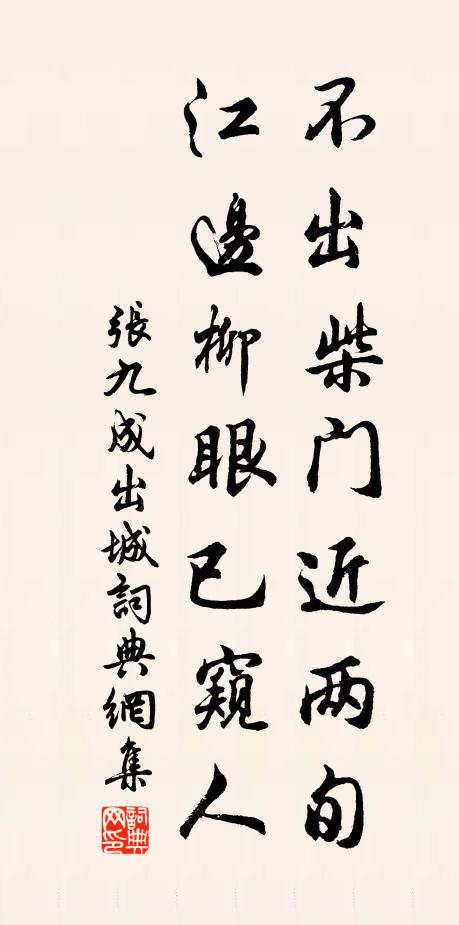 不出柴门近两旬
江邊柳眼已窺人
張九成出城詞典網集
詞典网印